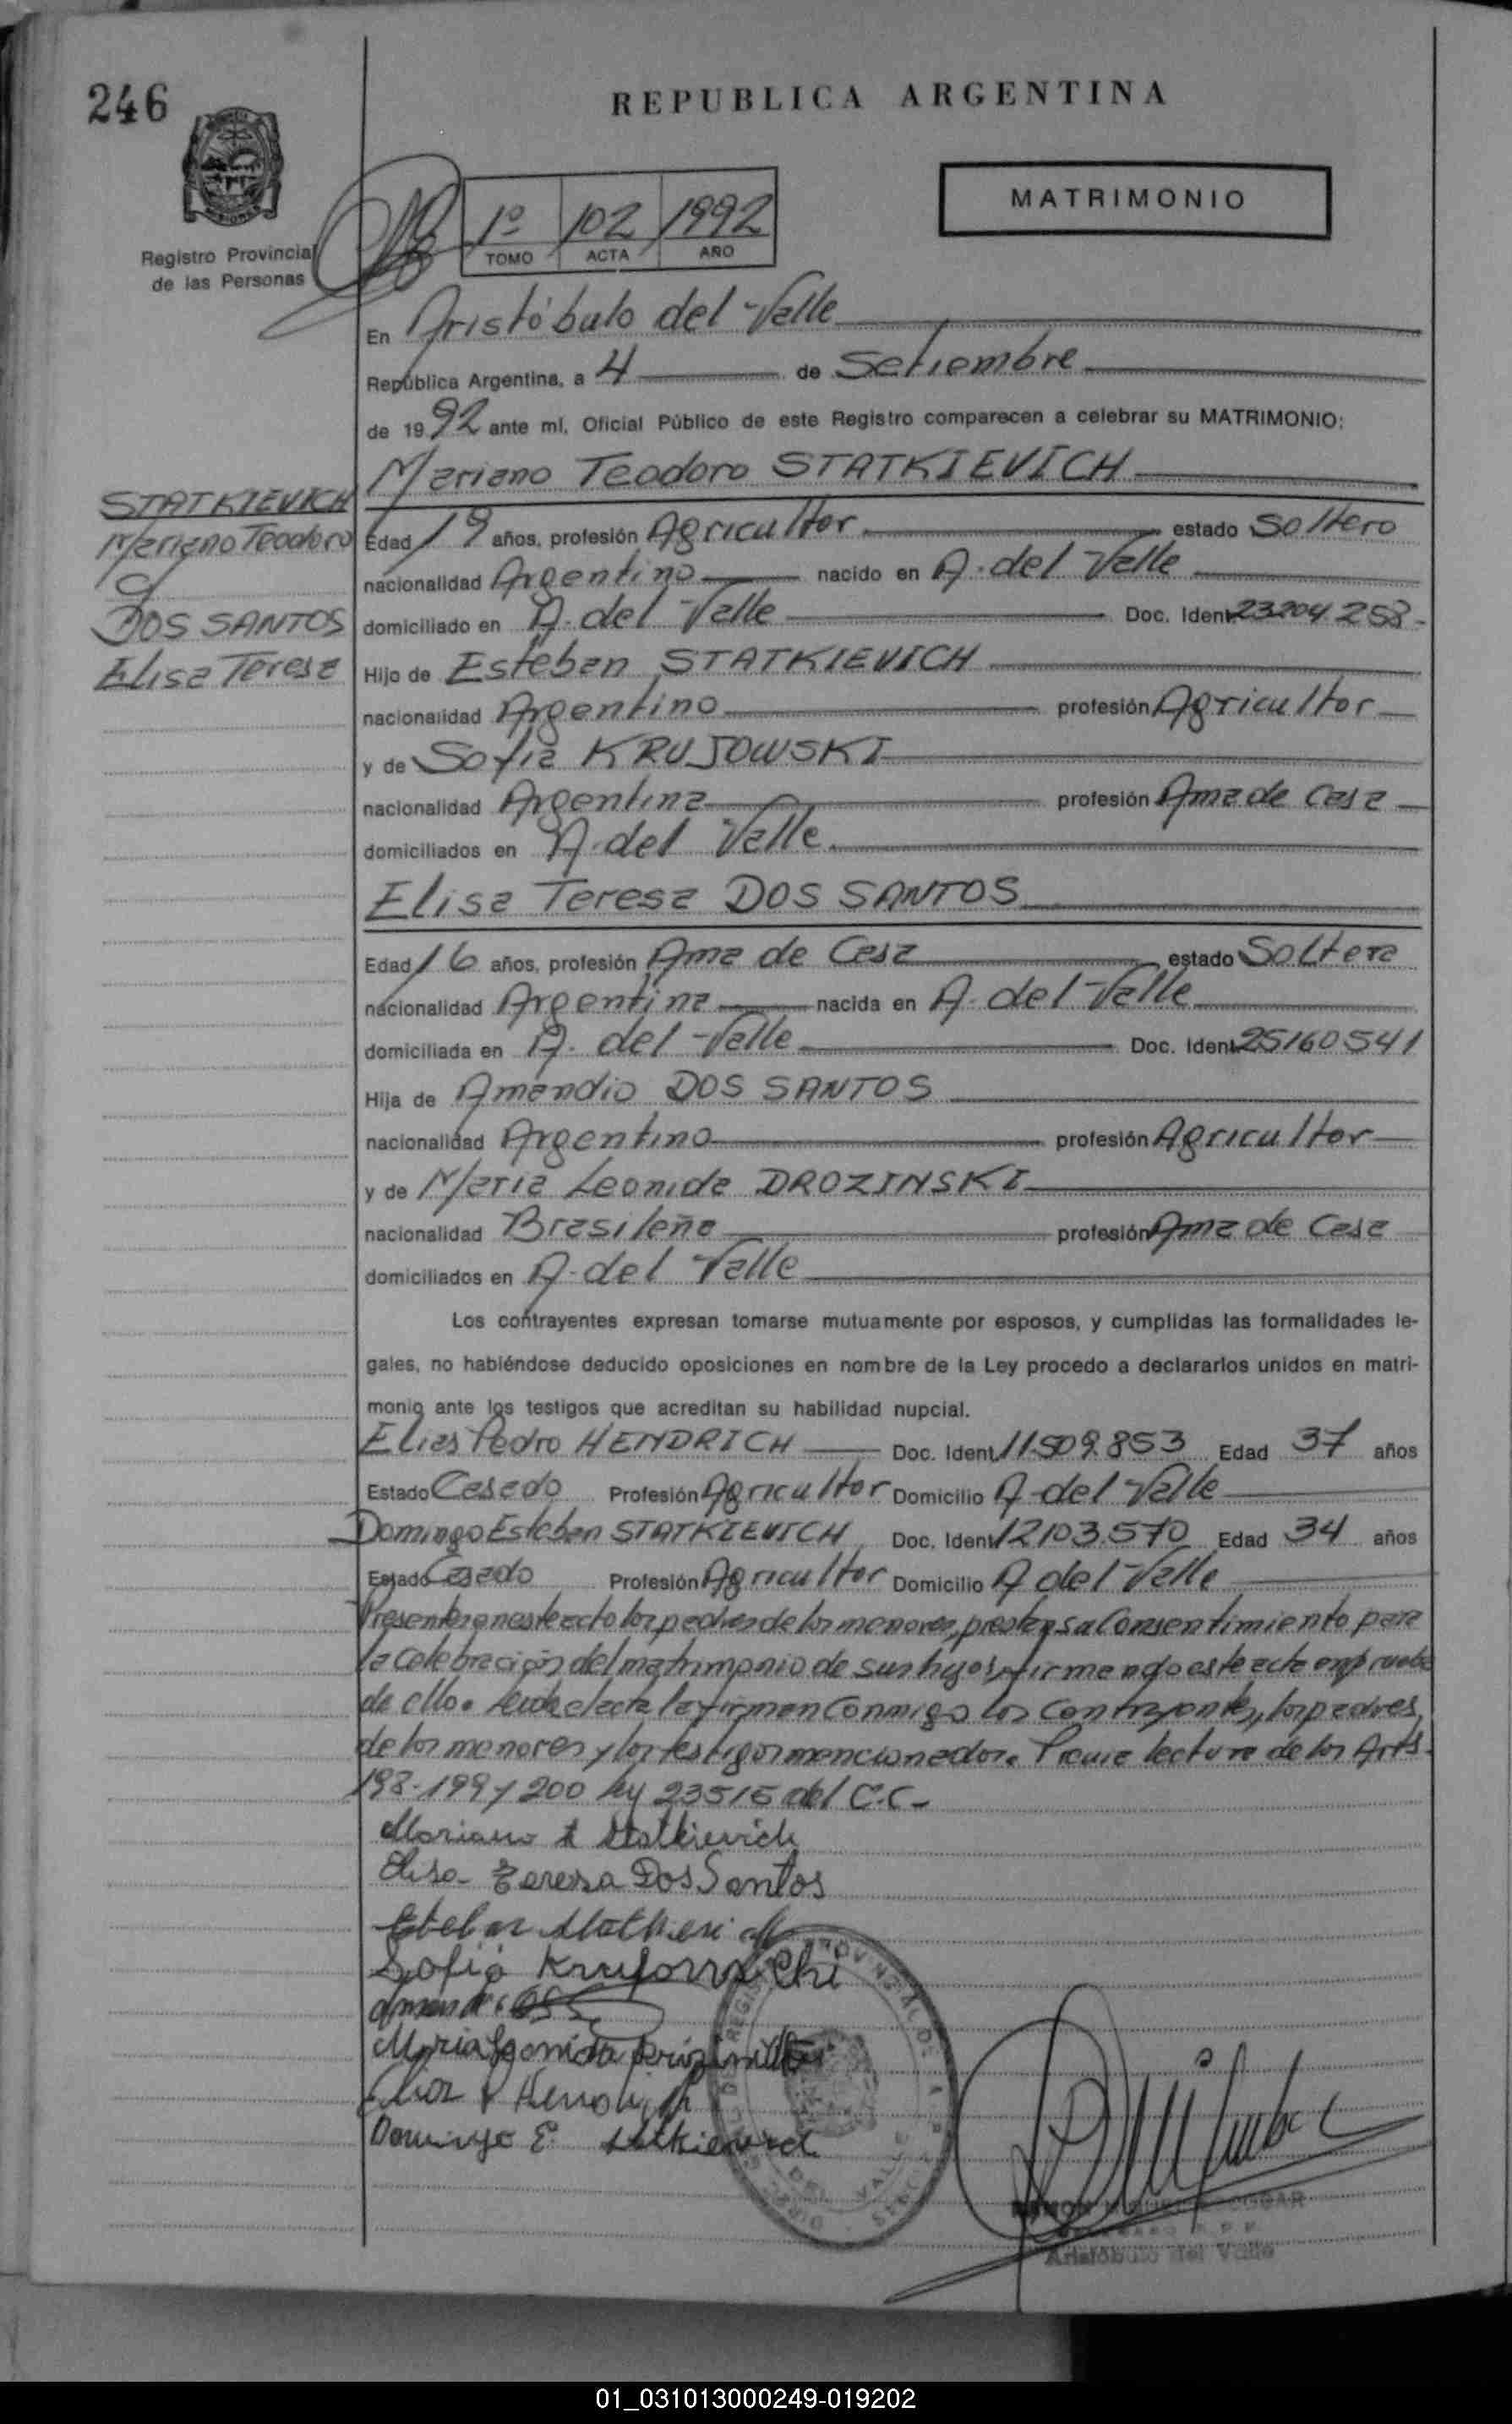 246
REPUBLICA ARGENTINA
MATRIMONIO
1º 102 1992
TOMO ACTA AÑO
Registro Provincial
de las Personas
En Aristóbulo del Valle
República Argentina, a 4 de Setiembre
de 1992 ante mí, Oficial Público de este Registro comparecen a celebrar su MATRIMONIO:
Mariano Teodoro STATKIEVICH
STATKIEVICH
Mariano Teodoro
y
DOS SANTOS
Elisa Teresa
Edad 19 años, profesión Agricultor estado Soltero
nacionalidad Argentino nacido en A. del Valle
domiciliado en A. del Valle Doc. Ident. 23204253
Hijo de Esteban STATKIEVICH
nacionalidad Argentino profesión Agricultor
y de Sofia KRUJOWSKI
nacionalidad Argentina profesión Ama de Casa
domiciliados en A. del Valle
Elisa Teresa DOS SANTOS
Edad 16 años, profesión Ama de Casa estado Soltera
nacionalidad Argentina nacida en A. del Valle
domiciliada en A. del Valle Doc. Ident. 25160541
Hija de Amandio DOS SANTOS
nacionalidad Argentino profesión Agricultor
y de Maria Leonida DROZINSKI
nacionalidad Brasileña profesión Ama de Casa
domiciliados en A. del Valle
Los contrayentes expresan tomarse mutuamente por esposos, y cumplidas las formalidades le-
gales, no habiéndose deducido oposiciones en nombre de la Ley procedo a declararlos unidos en matri-
monio ante los testigos que acreditan su habilidad nupcial.
Elias Pedro HENDRICH Doc. Ident. 11.509.853 Edad 37 años
Estado Casado Profesión Agricultor Domicilio A. del Valle
Domingo Esteban STATKIEVICH Doc. Ident. 12103.570 Edad 34 años
Estado Casado Profesión Agricultor Domicilio A del Valle
Presentes en este acto los padres de los menores, prestan su Consentimiento para
la celebración del matrimonio de sus hijos, firmando este acta en prueba
de ello. Leida el acta la firman Conmigo los Contrayentes, los padres
de los menores y los testigos mencionados. Previa lectura de los Arts.
198-199 y 200 ley 23515 del C.C.-
Mariano T Statkievich
Elisa Teresa Dos Santos
Sofia
Maria Leonida
Domingo E.
Aristóbulo del Valle
01_031013000249-019202